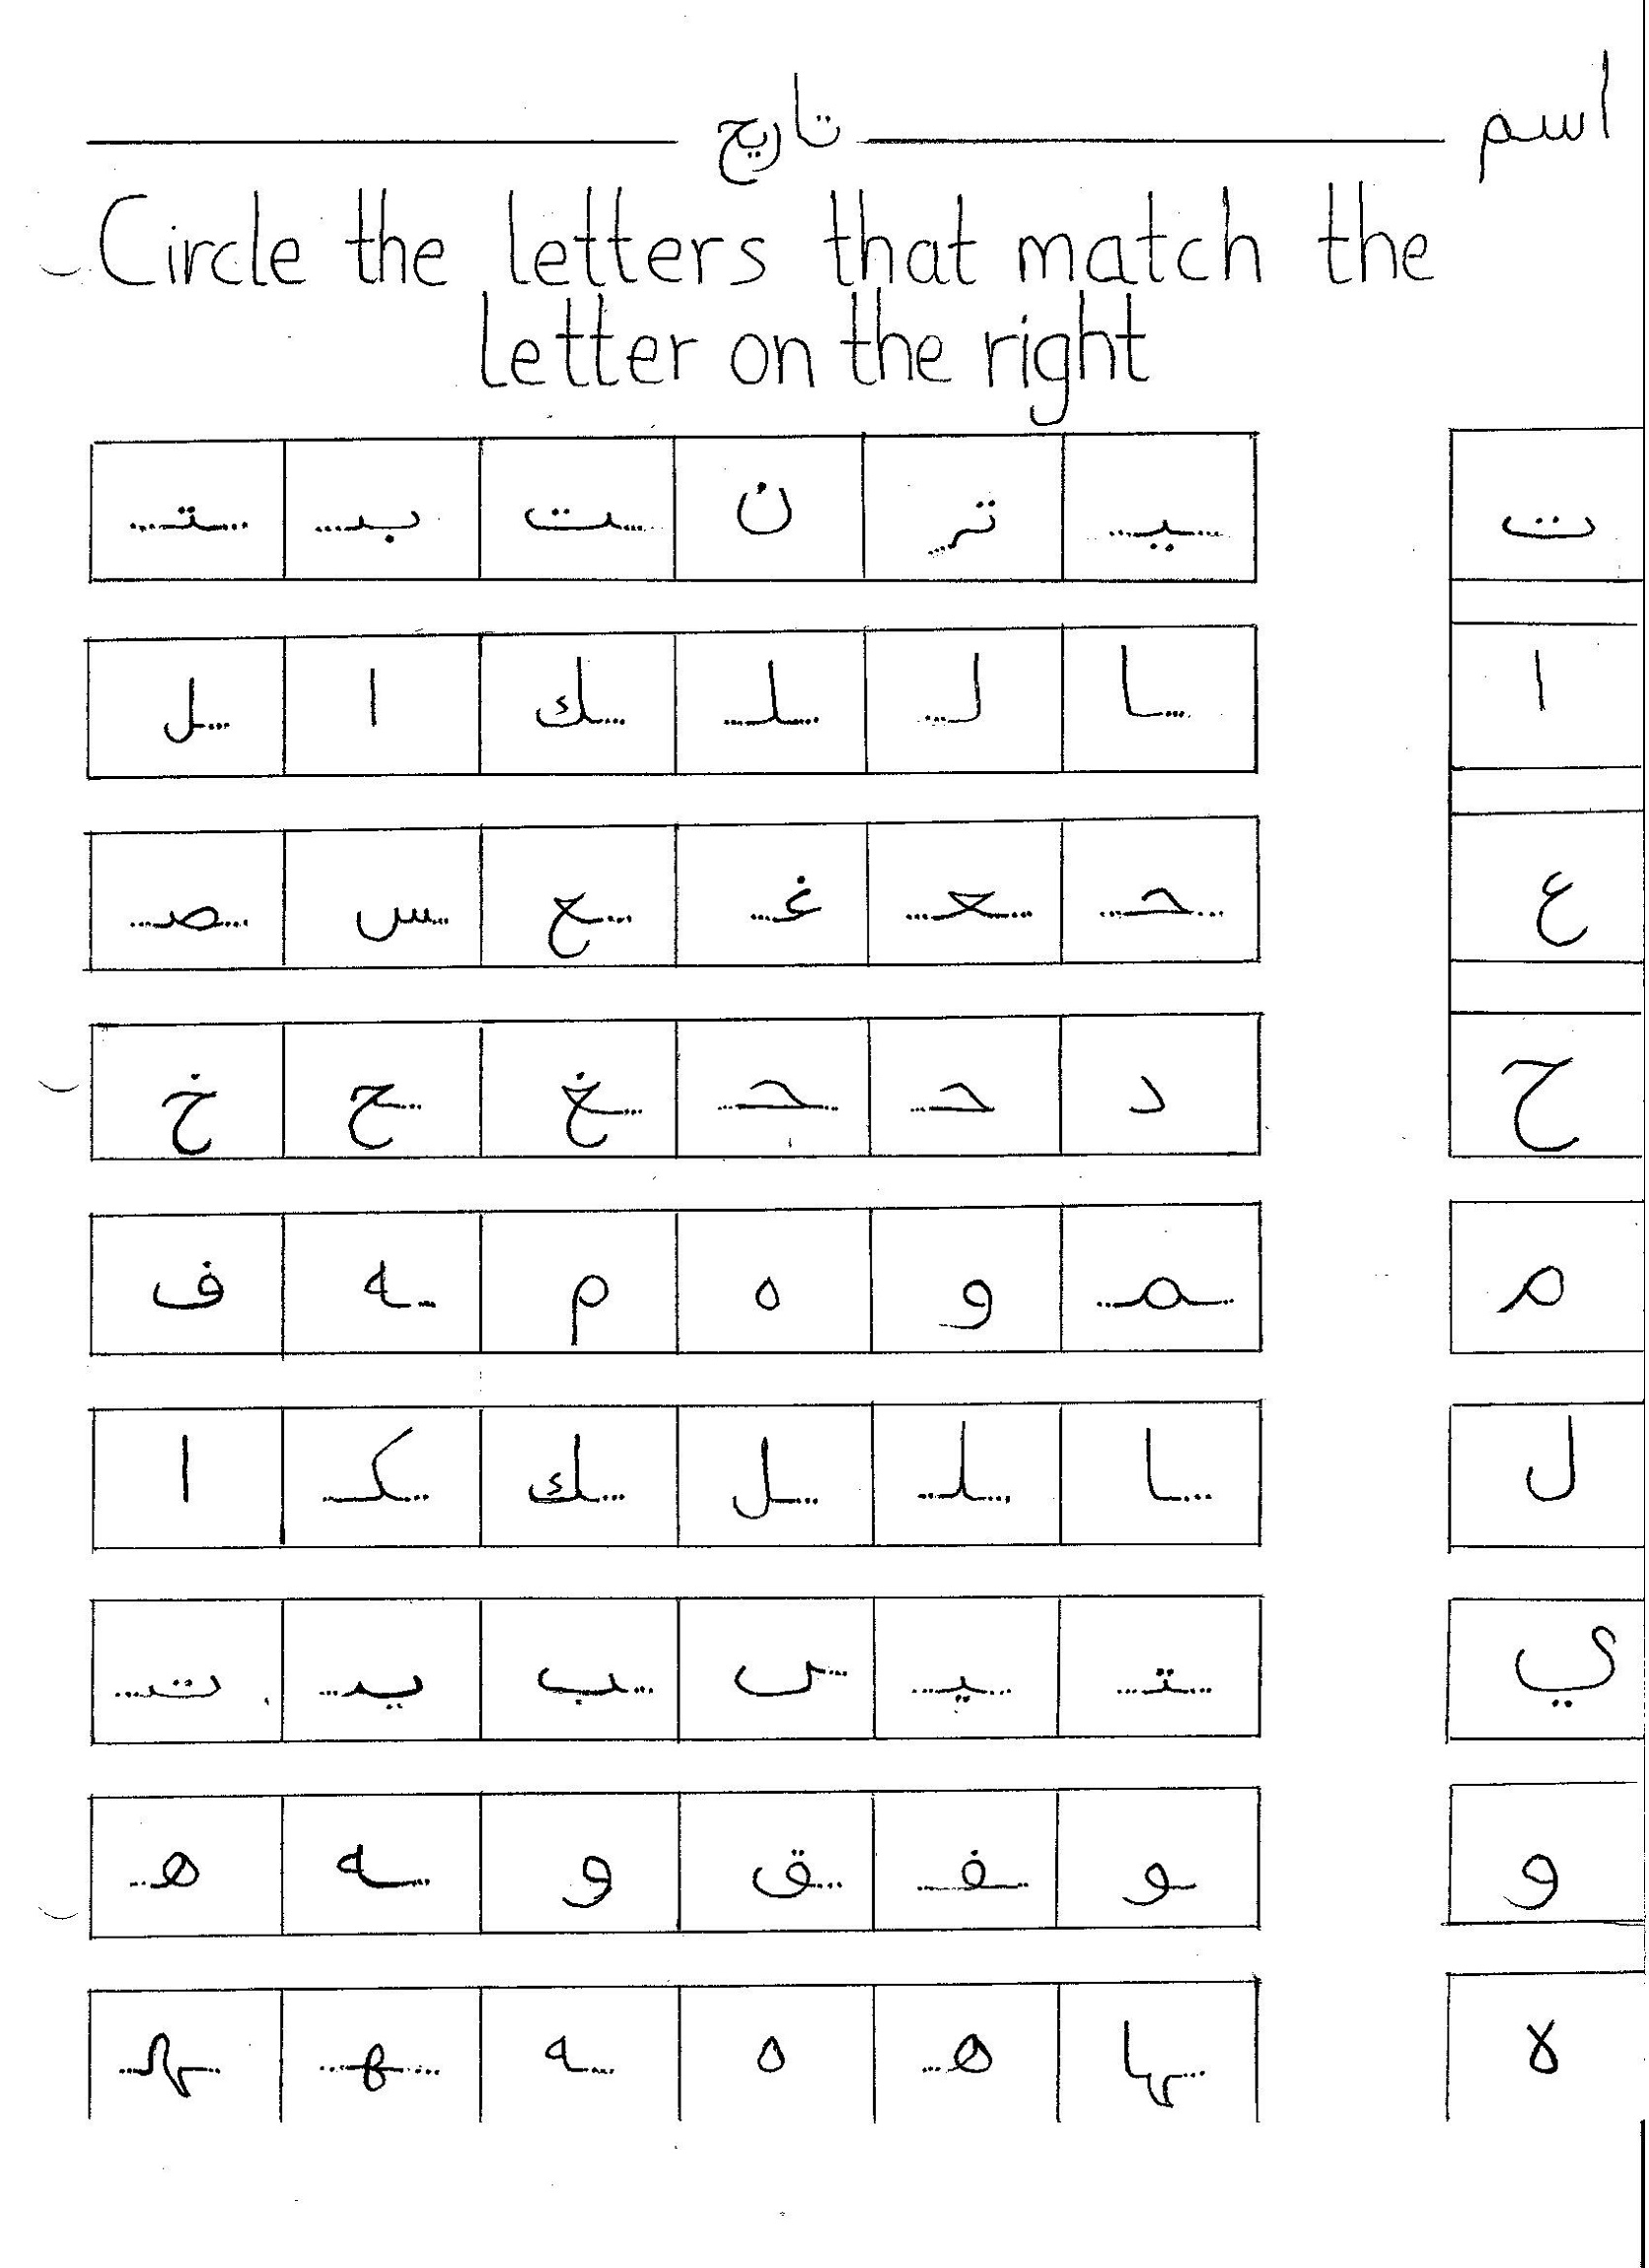 اسم ____________ تاريح ____________
Circle the letters that match the
letter on the right
ت يـ تر ن ـت بـ ـتـ
ا ـا لـ ـلـ ـك ا ـل
ع حـ ـعـ غـ ـع ـس ـصـ
ح د حـ ـحـ ـغ ـح خ
م ـمـ و ه م ـه ف
ل ـا ـلـ ـل ـك ـكـ ا
ي ـتـ ـيـ ـى ـب يـ تـ
و ـو ـفـ ـق و ـه هـ
ـها هـ ه ـه ـهـ ـهـ